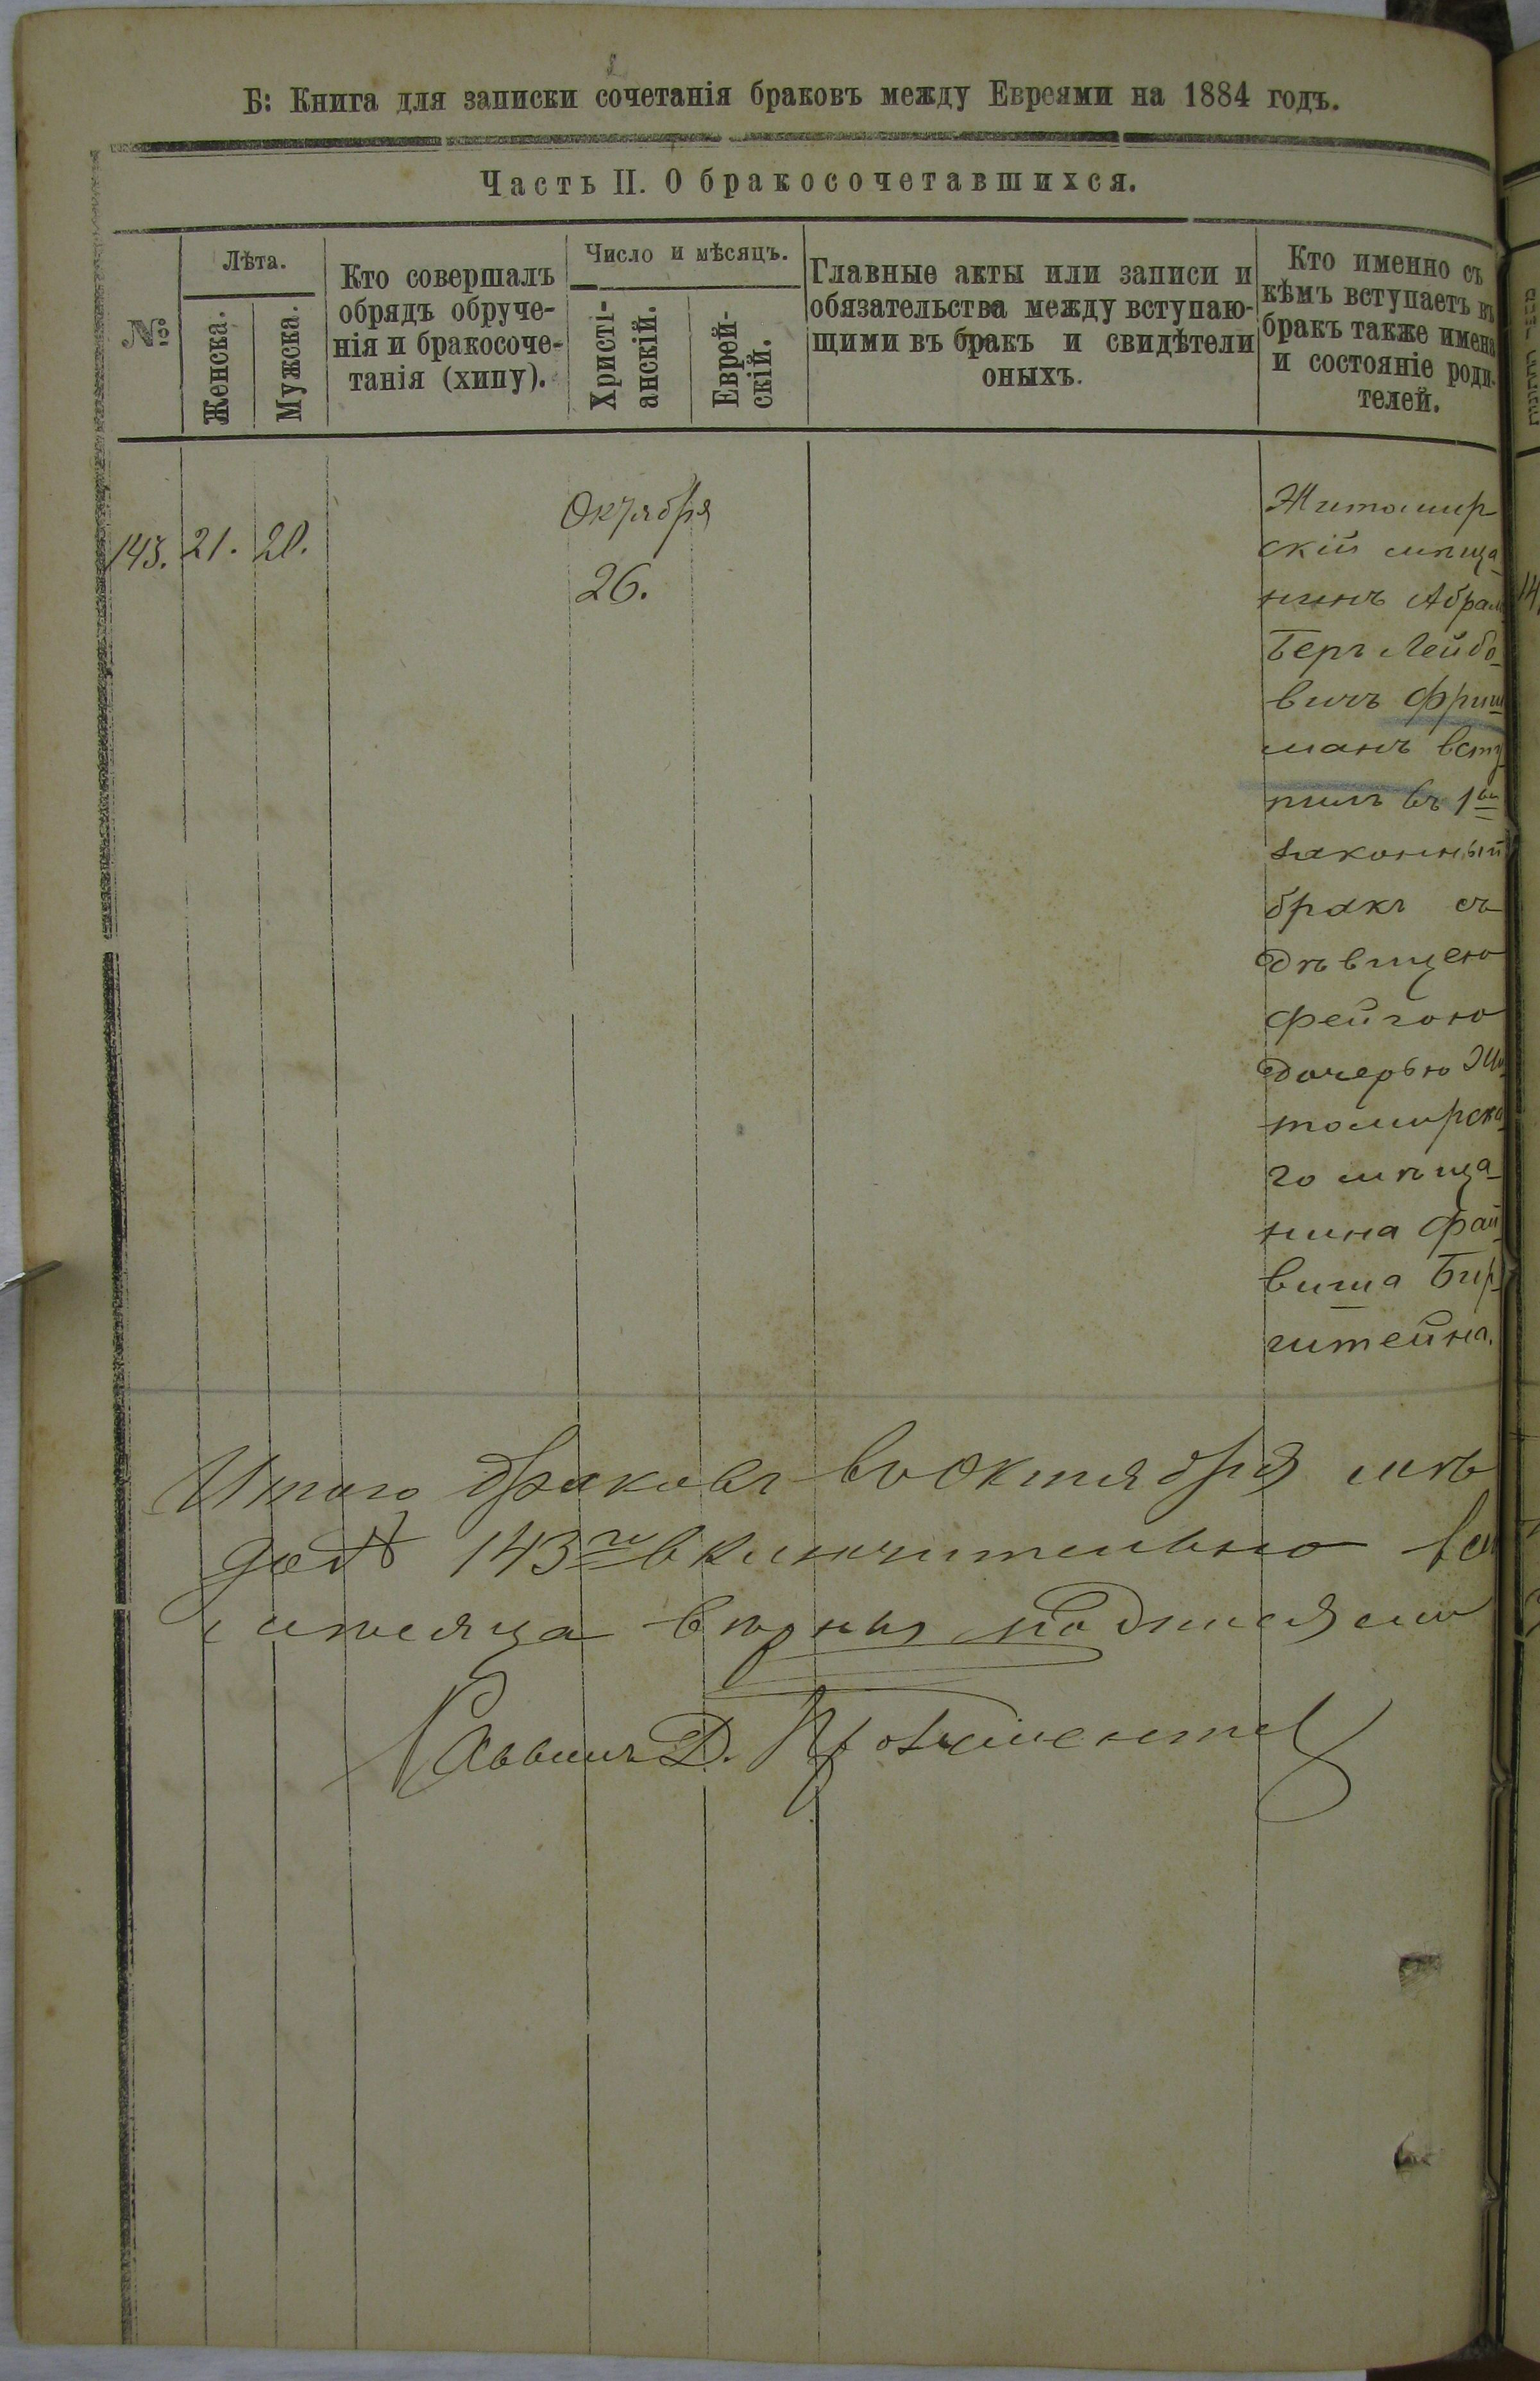 Б: Книга для записки сочетанія браковъ между Евреями на 1884 годъ.
Часть II. О бракосочетавшихся.
№
Лѣта.
Женска.
Мужска.
Кто совершалъ
обрядъ обруче-
нія и бракосоче-
танія (хипу).
Число и мѣсяцъ.
Христі-
анскій.
Еврей-
скій.
Главные акты или записи и
обязательства между вступаю-
щими въ бракъ и свидѣтели
оныхъ.
Кто именно съ
кѣмъ вступаетъ въ
бракъ также имена
и состояніе роди-
телей.
143. 21. 20.
Октября
26.
Житомир
скій мѣща
нинъ Абрам
Беръ Лейбо
вичъ Фриш
манъ всту
пилъ въ 1ый
законный
бракъ съ
дѣвицею
Фейгою
дочерью Жи
томирска
го мѣща
нина Фай
виша Бир
штейна.
Итого браковъ въ Октябрѣ мѣ
143 включительно
мѣсяца вѣрны подписями
Раввинъ Д.